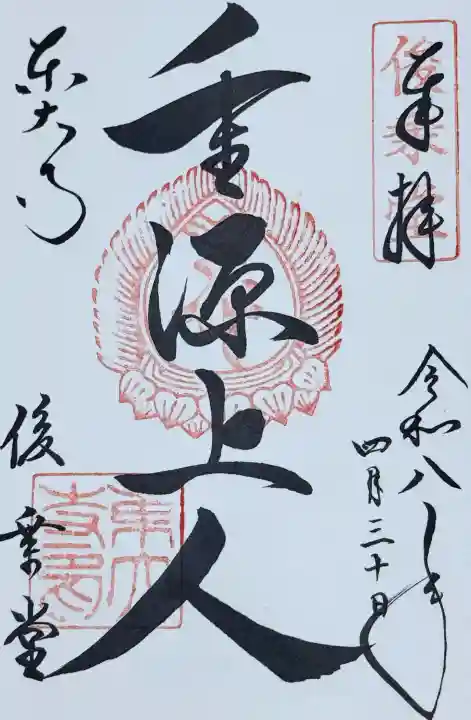 奉拝
俊乗堂
令和八年
四月三十日
重源上人
東大寺
俊乗堂
東大寺印